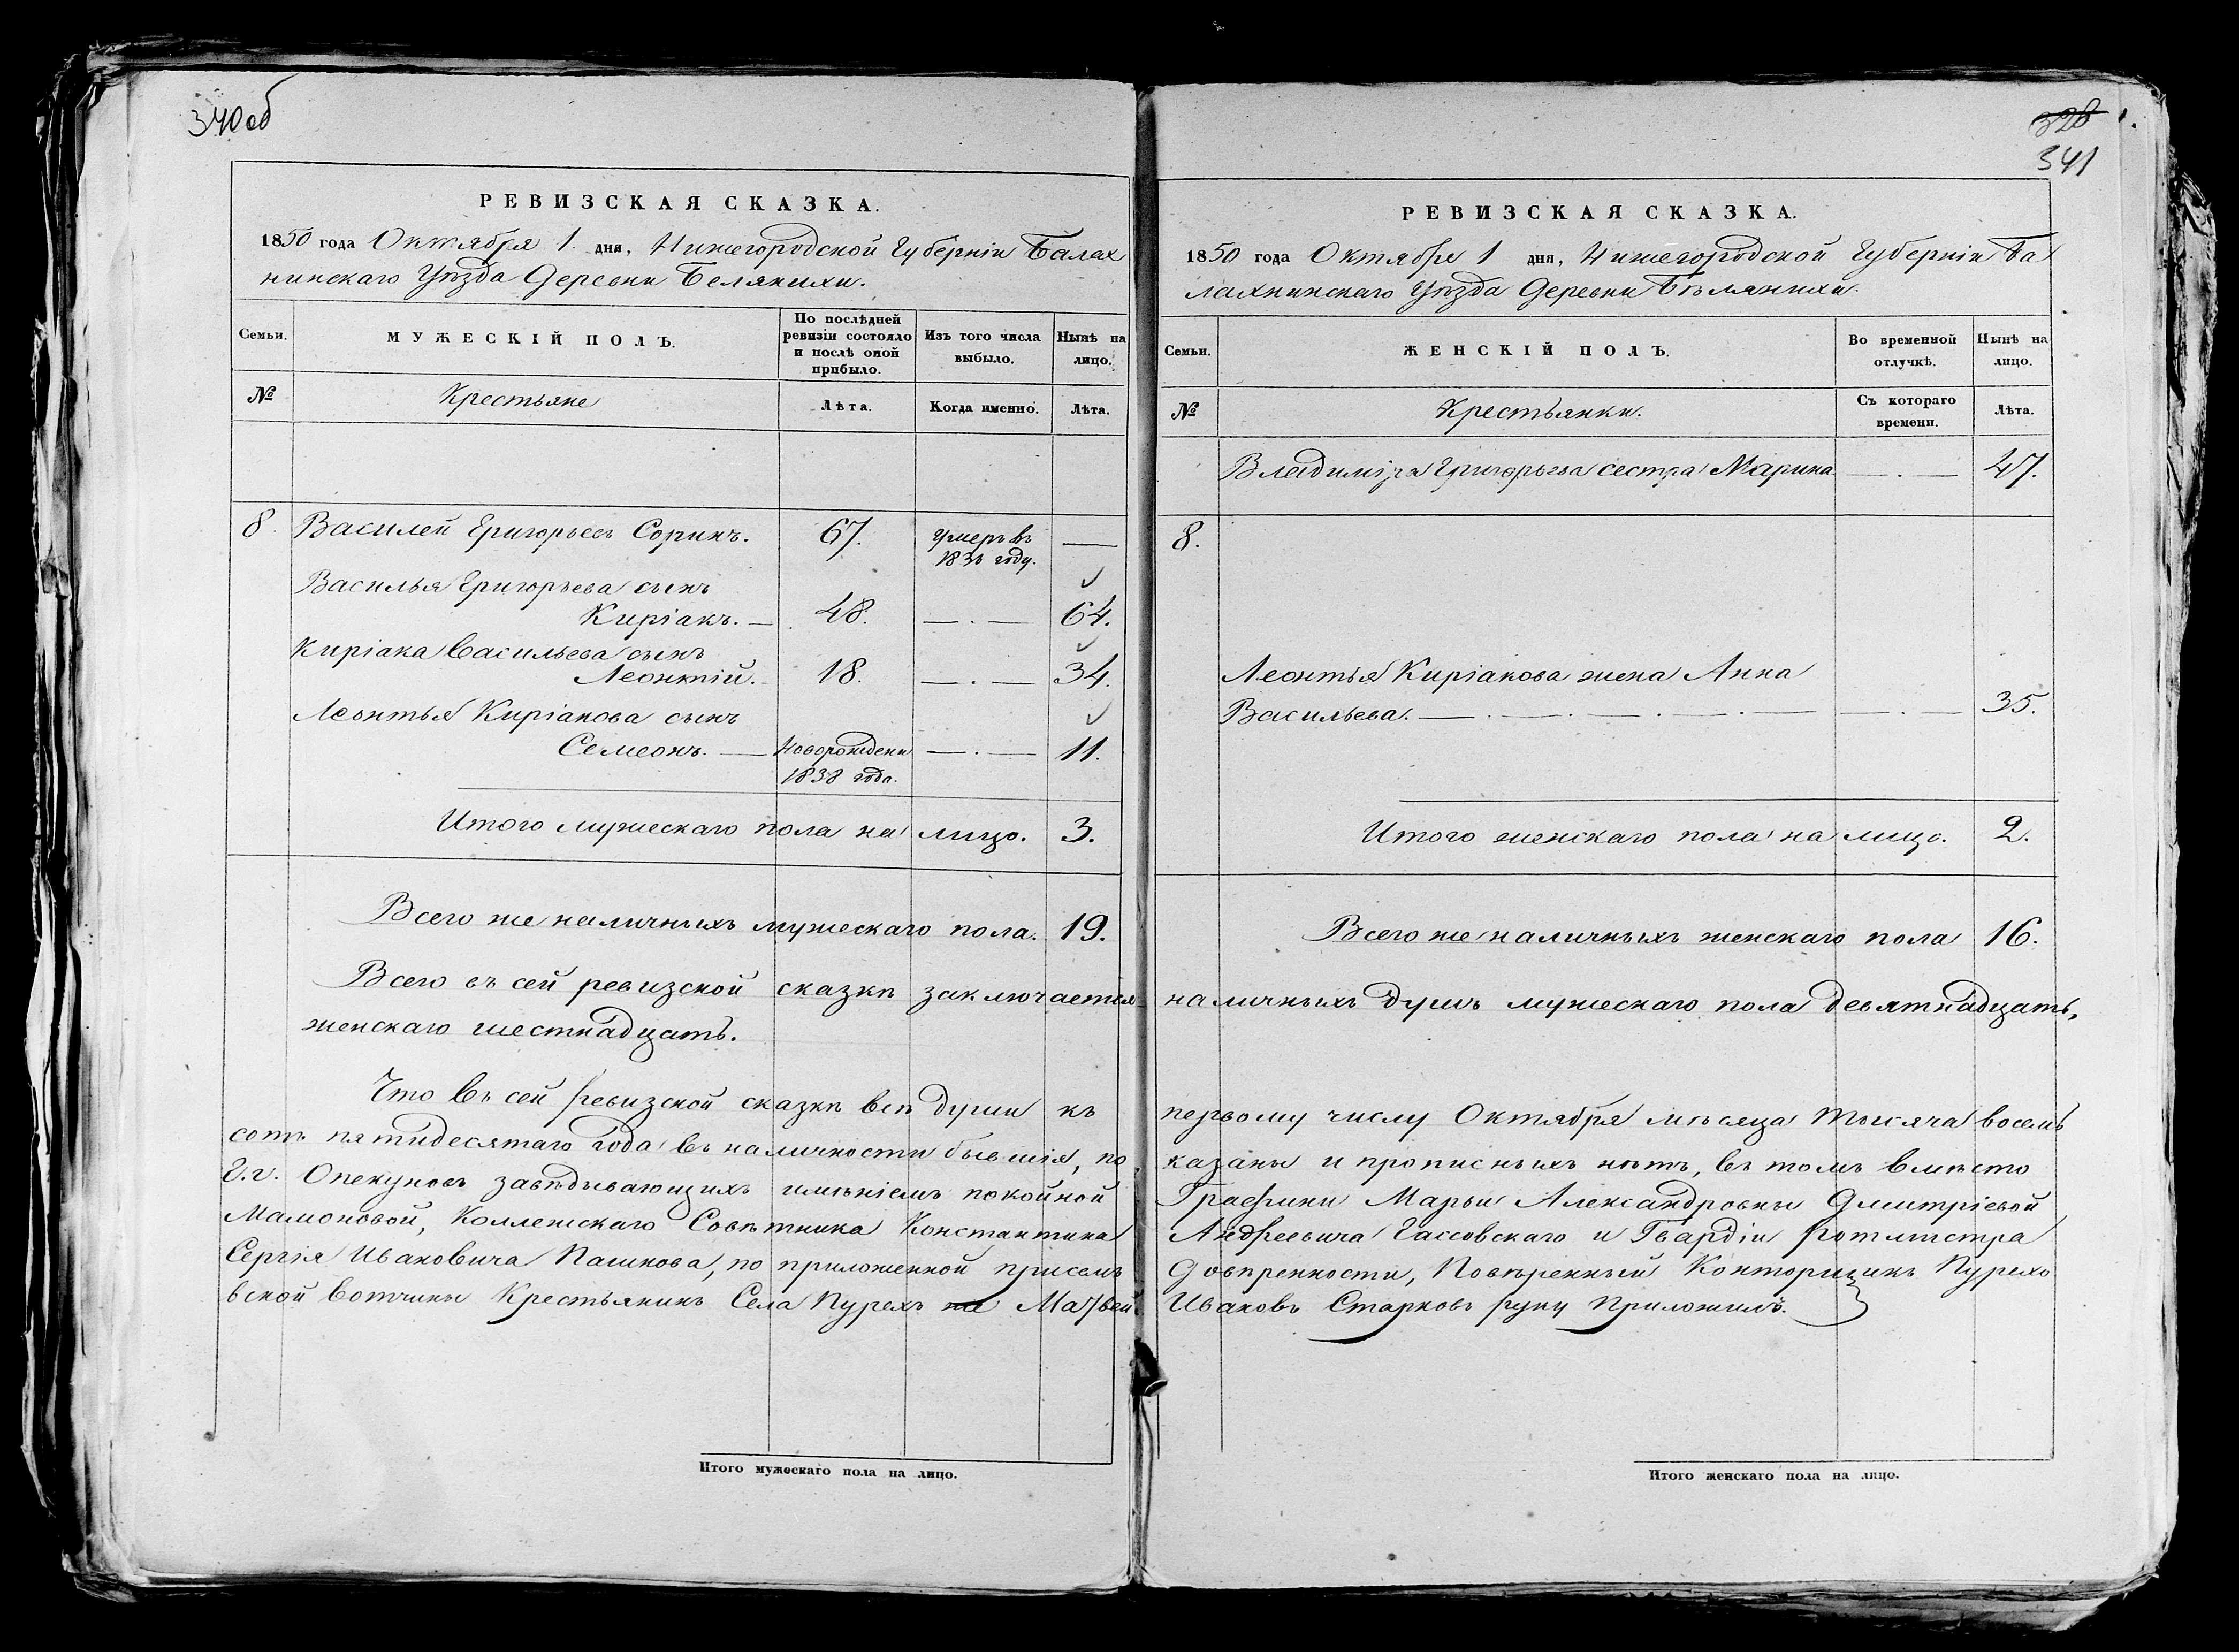 340 об
РЕВИЗСКАЯ СКАЗКА.
1850 года Октября 1 дня, Нижегородской Губерніи Балах
нинскаго Уѣзда Деревни Белянихи.
Семьи.
МУЖЕСКІЙ ПОЛЪ.
По послѣдней ревизіи состояло и послѣ оной прибыло.
Изъ того числа выбыло.
Нынѣ на лицо.
№
Крестьяне
Лѣта.
Когда именно.
Лѣта.
8. Василей Григорьевъ Соринъ. 67. Умеръ въ —
году.
Василья Григорьева сынъ
Киріакъ. — 48. — . — 64.
Киріака Васильева сынъ
Леонтій. 18. — . — 34.
Леонтья Киріакова сынъ
Семеонъ. — Новорожденн — . — 11.
1838 года.
Итого мужескаго пола на лицо. 3.
Всего же наличныхъ мужескаго пола. 19.
Всего въ сей ревизской сказкѣ заключается
женскаго шестнадцать.
Что въ сей ревизской сказкѣ всѣ души къ
сотъ пятидесятаго года въ наличности бывшія, по
Г.г. Опекуновъ завѣдывающихъ имѣніемъ покойной
Мамоновой, Коллежскаго Совѣтника Константина
Сергія Ивановича Пашкова, по приложенной присемъ
вской вотчины Крестьянинъ Села Пурехъ Матвей
Итого мужескаго пола на лицо.
328
341
РЕВИЗСКАЯ СКАЗКА.
1850 года Октября 1 дня, Нижегородской Губерніи Ба
лахнинскаго Уѣзда Деревни Бѣлянихи.
Семьи.
ЖЕНСКІЙ ПОЛЪ.
Во временной отлучкѣ.
Нынѣ на лицо.
№
Крестьянки.
Съ котораго времени.
Лѣта.
Владиміра Григорьева сестра Марина — . — 47.
8.
Леонтья Киріакова жена Анна
Васильева. — . — . — . — . — — . — 35.
Итого женскаго пола на лицо. 2.
Всего же наличныхъ женскаго пола 16.
наличныхъ душъ мужескаго пола девятнадцать,
первому числу Октября мѣсяца тысяча восемь
казаны и прописныхъ нѣтъ, въ томъ вмѣсто
Графини Марьи Александровны Дмитріевой
Андреевича Гассовскаго и Гвардіи Ротмистра
Довѣренности, Повѣренный Конторщикъ Пурехо
Ивановъ Старковъ руку приложилъ.
Итого женскаго пола на лицо.